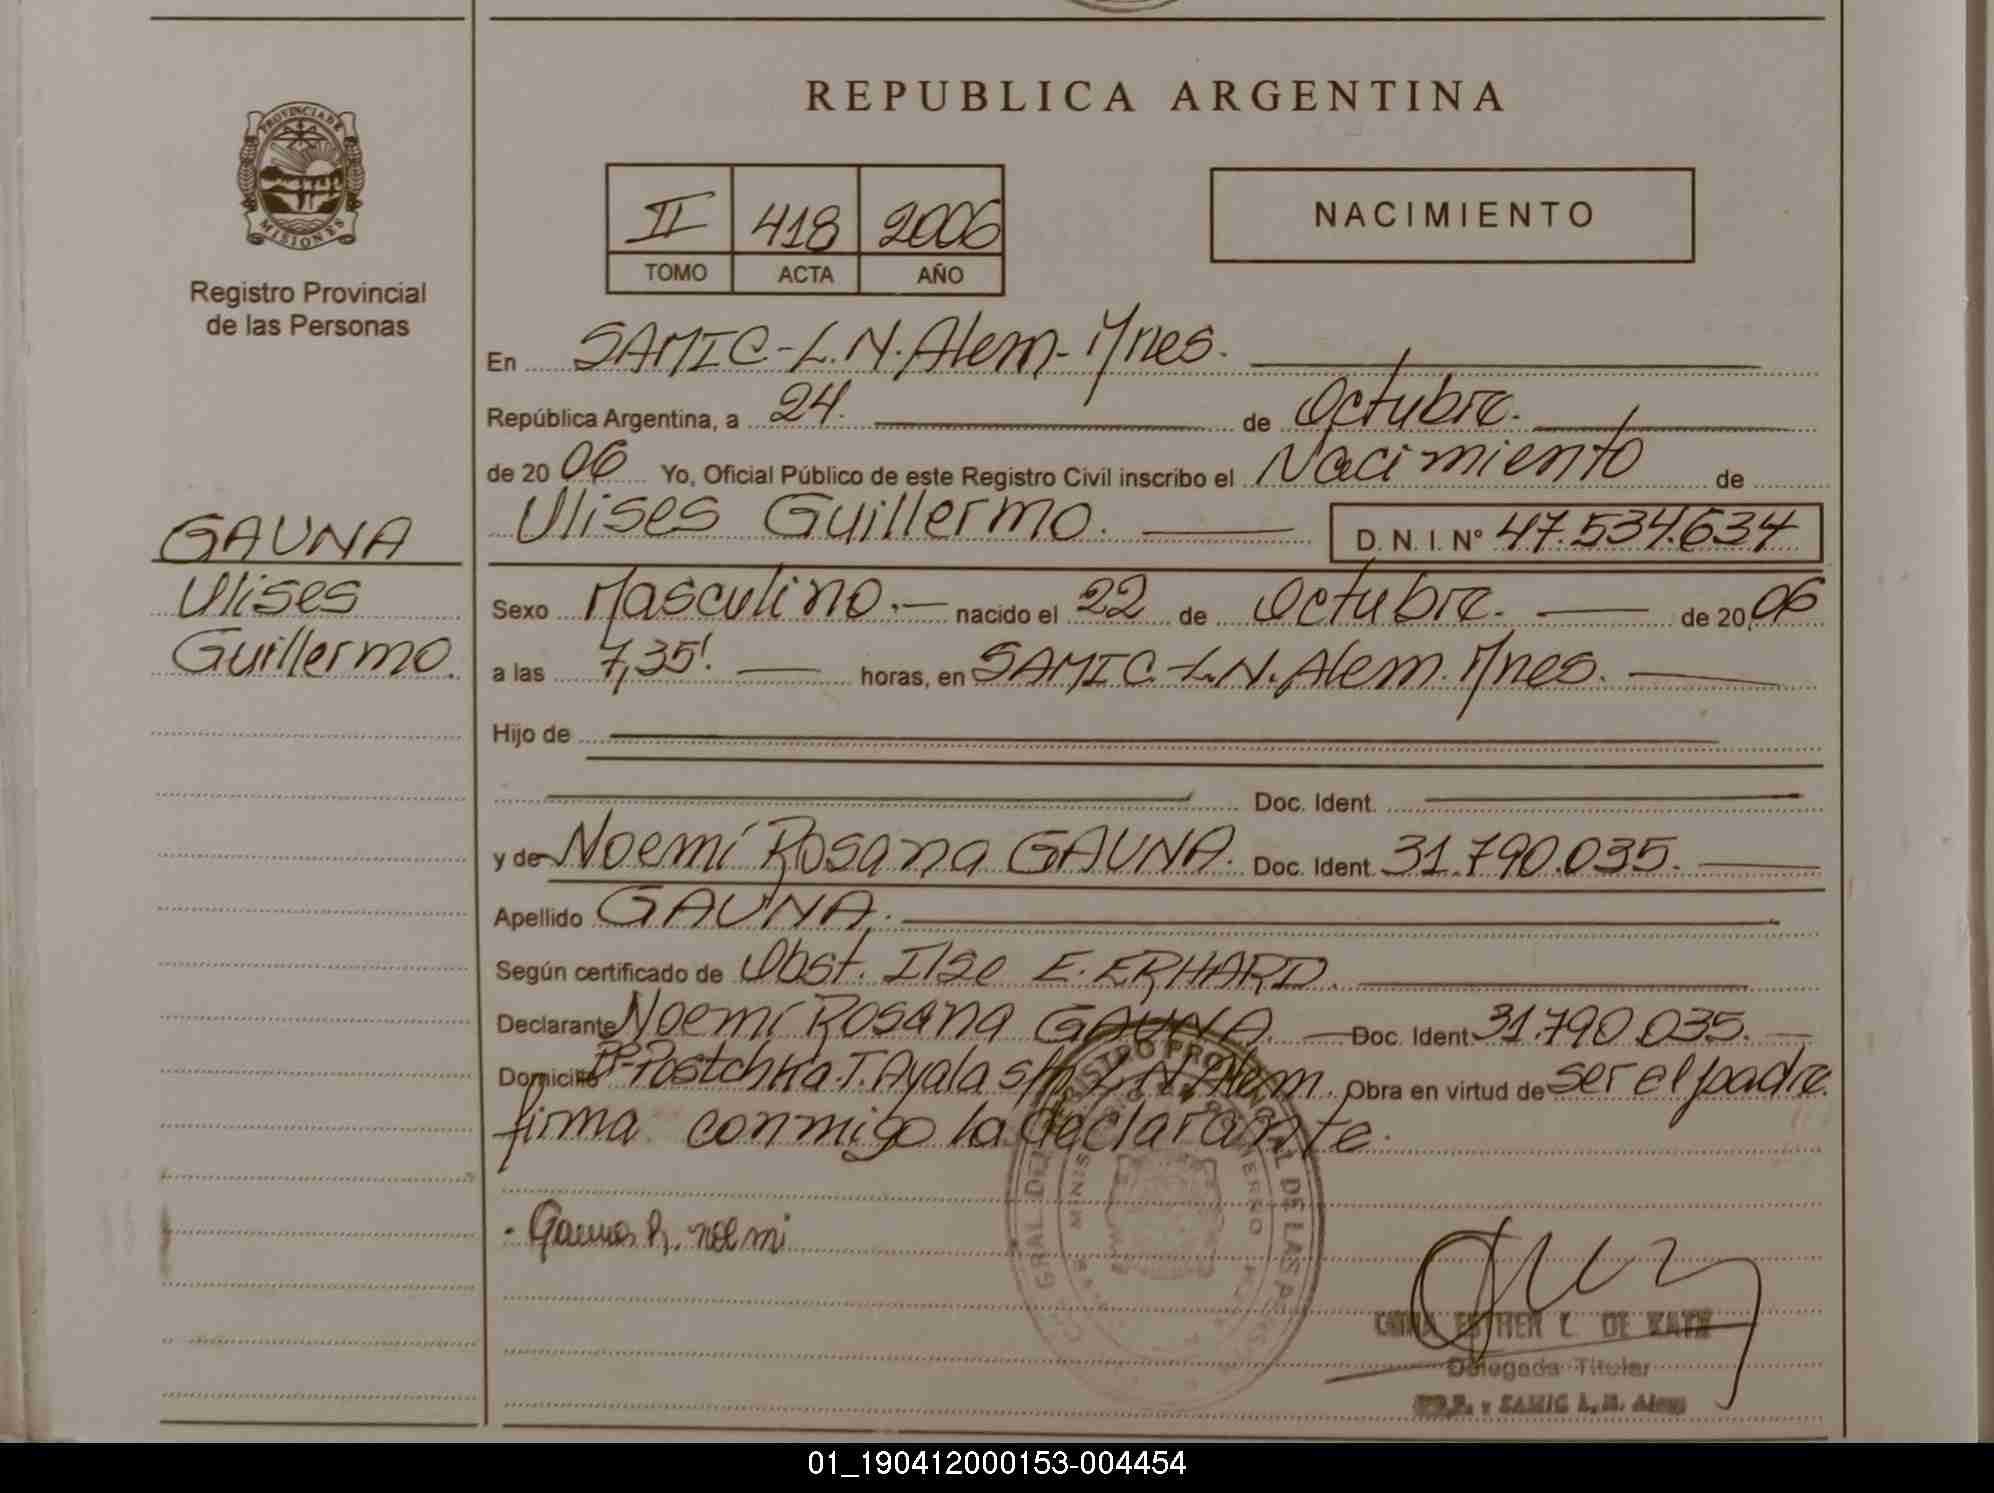 REPUBLICA ARGENTINA
PROVINCIA DE
MISIONES
Registro Provincial
de las Personas
II 418 2006
TOMO ACTA AÑO
NACIMIENTO
En SAMIC-L.N.Alem-Mnes.
República Argentina, a 24. de Octubre.
de 2006 Yo, Oficial Público de este Registro Civil inscribo el Nacimiento de
Ulises Guillermo. D. N. I. N° 47.534.634
GAUNA
Ulises
Guillermo.
Sexo Masculino.- nacido el 22 de Octubre. de 2006
a las 7,35'. horas, en SAMIC.-L.N.Alem.Mnes.
Hijo de
Doc. Ident.
y de Noemí Rosana GAUNA. Doc. Ident. 31.790.035.
Apellido GAUNA.
Según certificado de Obst. Ilse E. ERHARD.
Declarante Noemí Rosana GAUNA. Doc. Ident. 31.790.035.
Domicilio T. Ayala s/n L.N Alem. Obra en virtud de ser el padre
firma conmigo la declarante.
Gauna R. noemi
ESTHER L. DE
Delegada Titular
SAMIC L. N. Alem
01_190412000153-004454